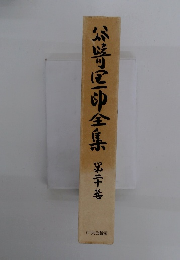 谷崎潤一郎全集
第二十巻